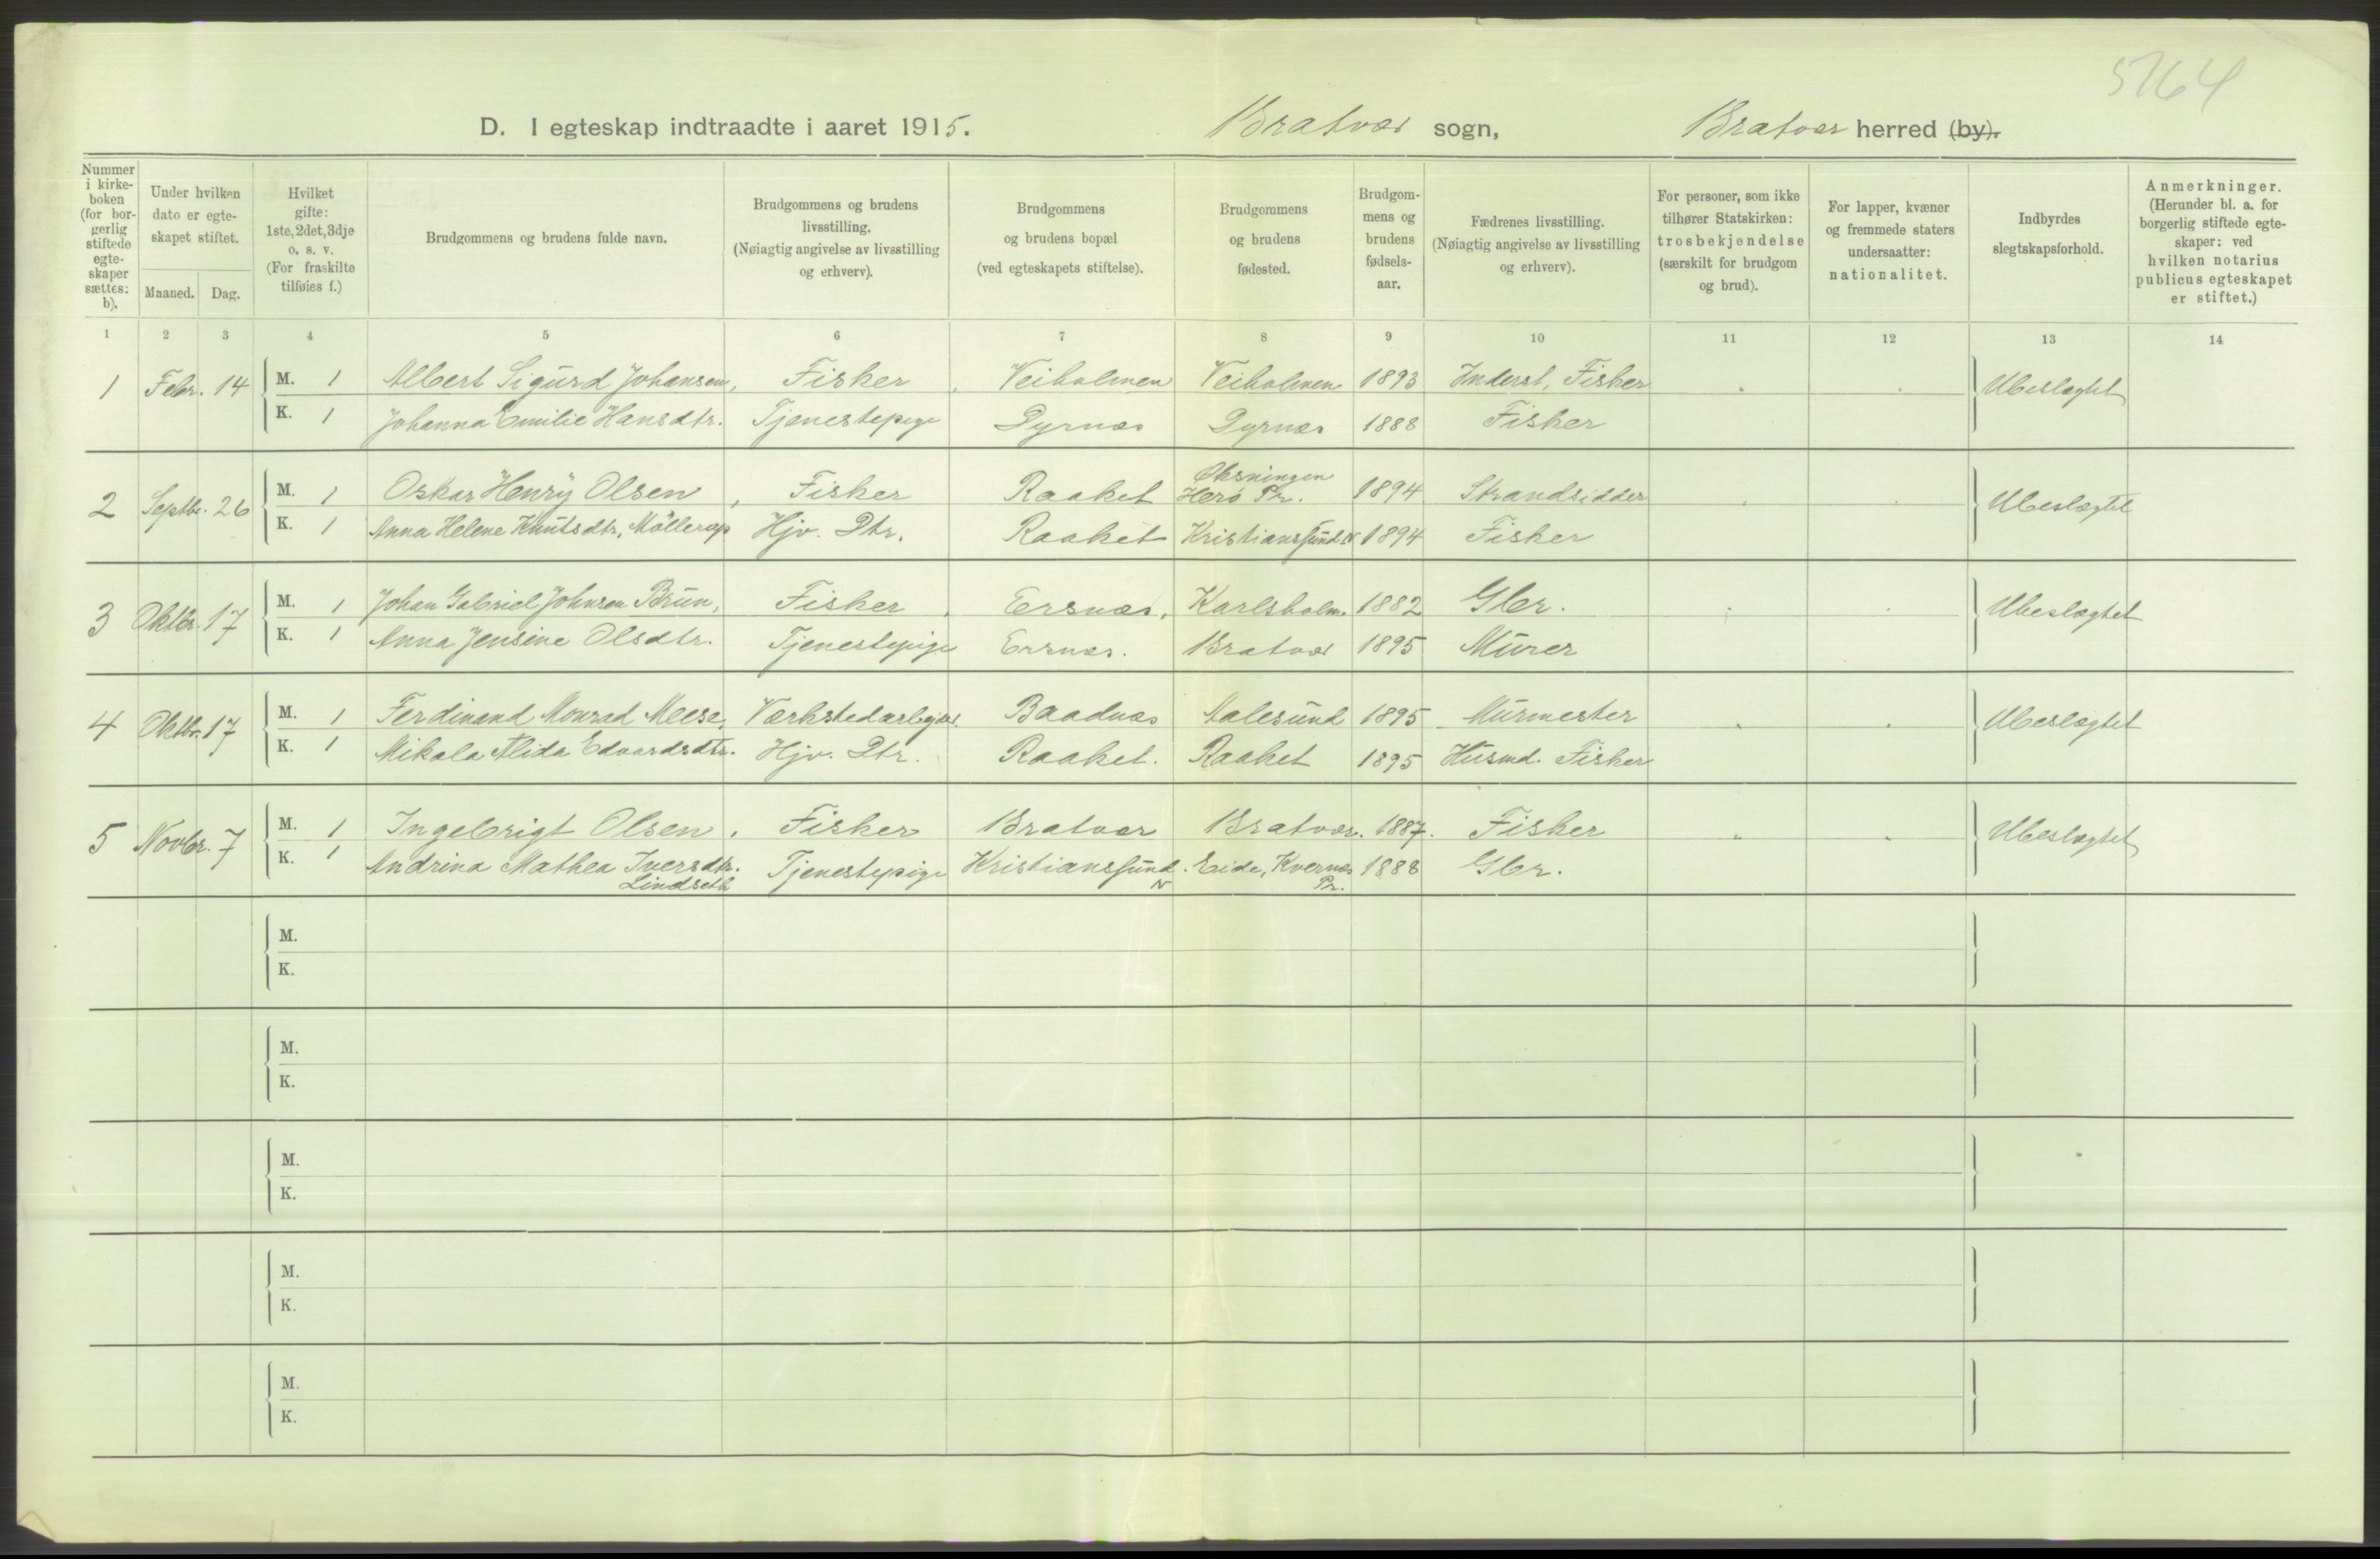 5764
D. I egteskap indtraadte i aaret 1915. Bratvær sogn, Bratvær herred (by).
Nummer i kirkeboken (for borgerlig stiftede egteskaper sættes: b).
Under hvilken dato er egteskapet stiftet.
Maaned. Dag.
Hvilket gifte: 1ste, 2det, 3dje o. s. v. (For fraskilte tilføies f.)
Brudgommens og brudens fulde navn.
Brudgommens og brudens livsstilling. (Nøiagtig angivelse av livsstilling og erhverv).
Brudgommens og brudens bopæl (ved egteskapets stiftelse).
Brudgommens og brudens fødested.
Brudgommens og brudens fødselsaar.
Fædrenes livsstilling. (Nøiagtig angivelse av livsstilling og erhverv).
For personer, som ikke tilhører Statskirken: trosbekjendelse (særskilt for brudgom og brud).
For lapper, kvæner og fremmede staters undersaatter: nationalitet.
Indbyrdes slegtskapsforhold.
Anmerkninger. (Herunder bl. a. for borgerlig stiftede egteskaper: ved hvilken notarius publicus egteskapet er stiftet.)
1 2 3 4 5 6 7 8 9 10 11 12 13 14
1 Febr. 14 M. 1 Albert Sigurd Johansen, Fisker Veiholmen Veiholmen 1893 Inderst, Fisker Ubeslægtet
K. 1 Johanna Emilie Hansdtr. Tjenestepige Dyrnæs Dyrnæs 1888 Fisker
2 Septbr. 26 M. 1 Oskar Henry Olsen, Fisker Raaket Øksningen Herö Pr. 1894 Strandsidder Ubeslægtet
K. 1 Anna Helene Knutsdtr. Möllerop Hjv. Dtr. Raaket Kristianssund N 1894 Fisker
3 Oktbr. 17 M. 1 Johan Gabriel Johnsen Brun, Fisker Ersnæs, Karlsholm. 1882 Gbr. Ubeslægtet
K. 1 Anna Jensine Olsdtr. Tjenestepige Ersnæs. Bratvær 1895 Murer
4 Oktbr. 17 M. 1 Ferdinand Monrad Meese, Værkstedarbeider Baadnæs Aalesund 1895 Murmester Ubeslægtet
K. 1 Mikala Alida Edvardsdtr. Hjv. Dtr. Raaket. Raaket 1895 Husmd. Fisker
5 Novbr. 7 M. 1 Ingebrigt Olsen, Fisker Bratvær Bratvær. 1887. Fisker Ubeslægtet
K. 1 Andrina Mathea Iversdtr. Lindseth Tjenestepige Kristianssund N. Eide, Kvernæs Pr. 1888 Gbr.
M.
K.
M.
K.
M.
K.
M.
K.
M.
K.